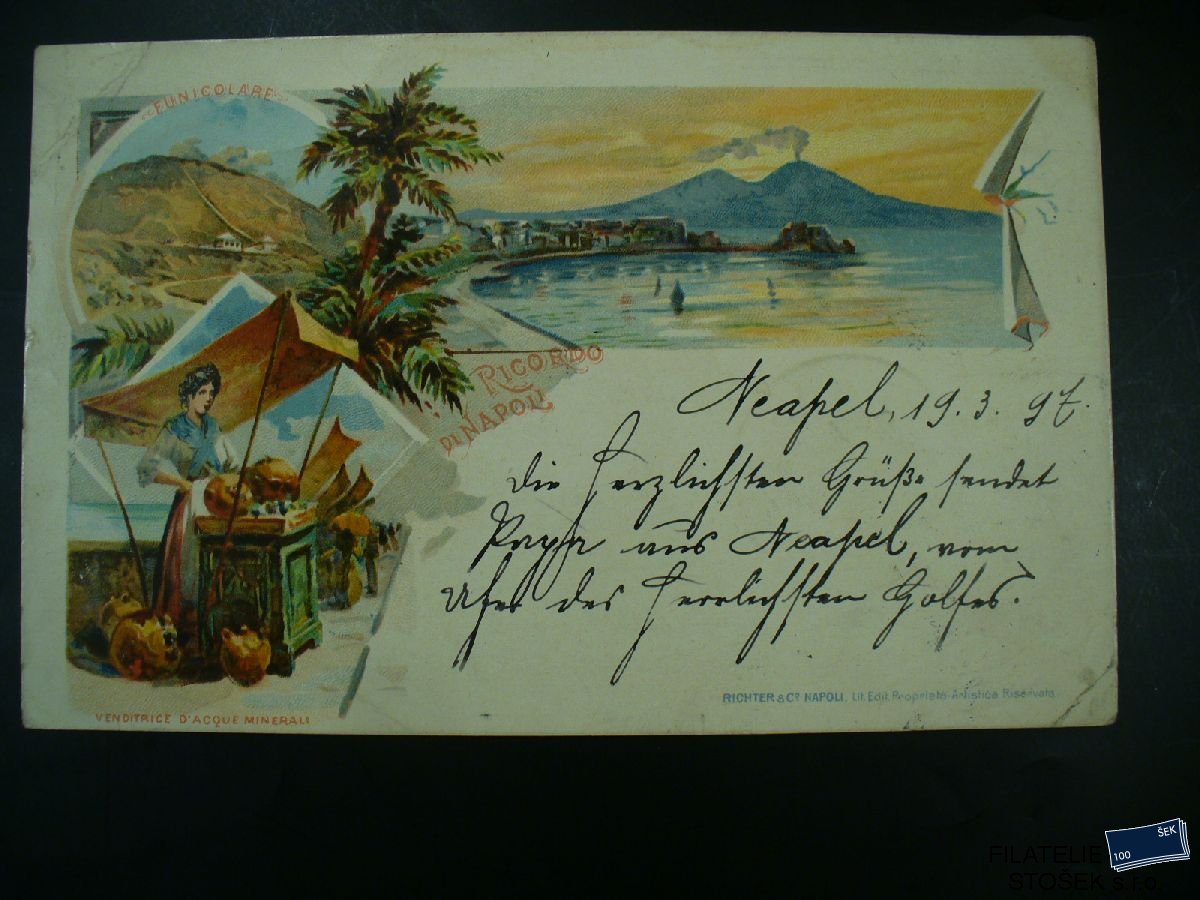 FUNICOLARE
RICORDO
DI NAPOLI
Neapel, 19. 3. 97.
Die herzlichsten Grüße sendet
Papa aus Neapel, vom
Ufer des herrlichsten Golfes.
RICHTER & Cº NAPOLI. Lit. Edit. Proprietà Artistica Riservata
VENDITRICE D'ACQUE MINERALI
ŠEK
100
FILATELIE
STOŠEK s.r.o.